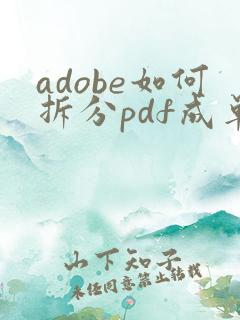 adobe如何
拆分pdf成单
山下知子
未经同意禁止转载